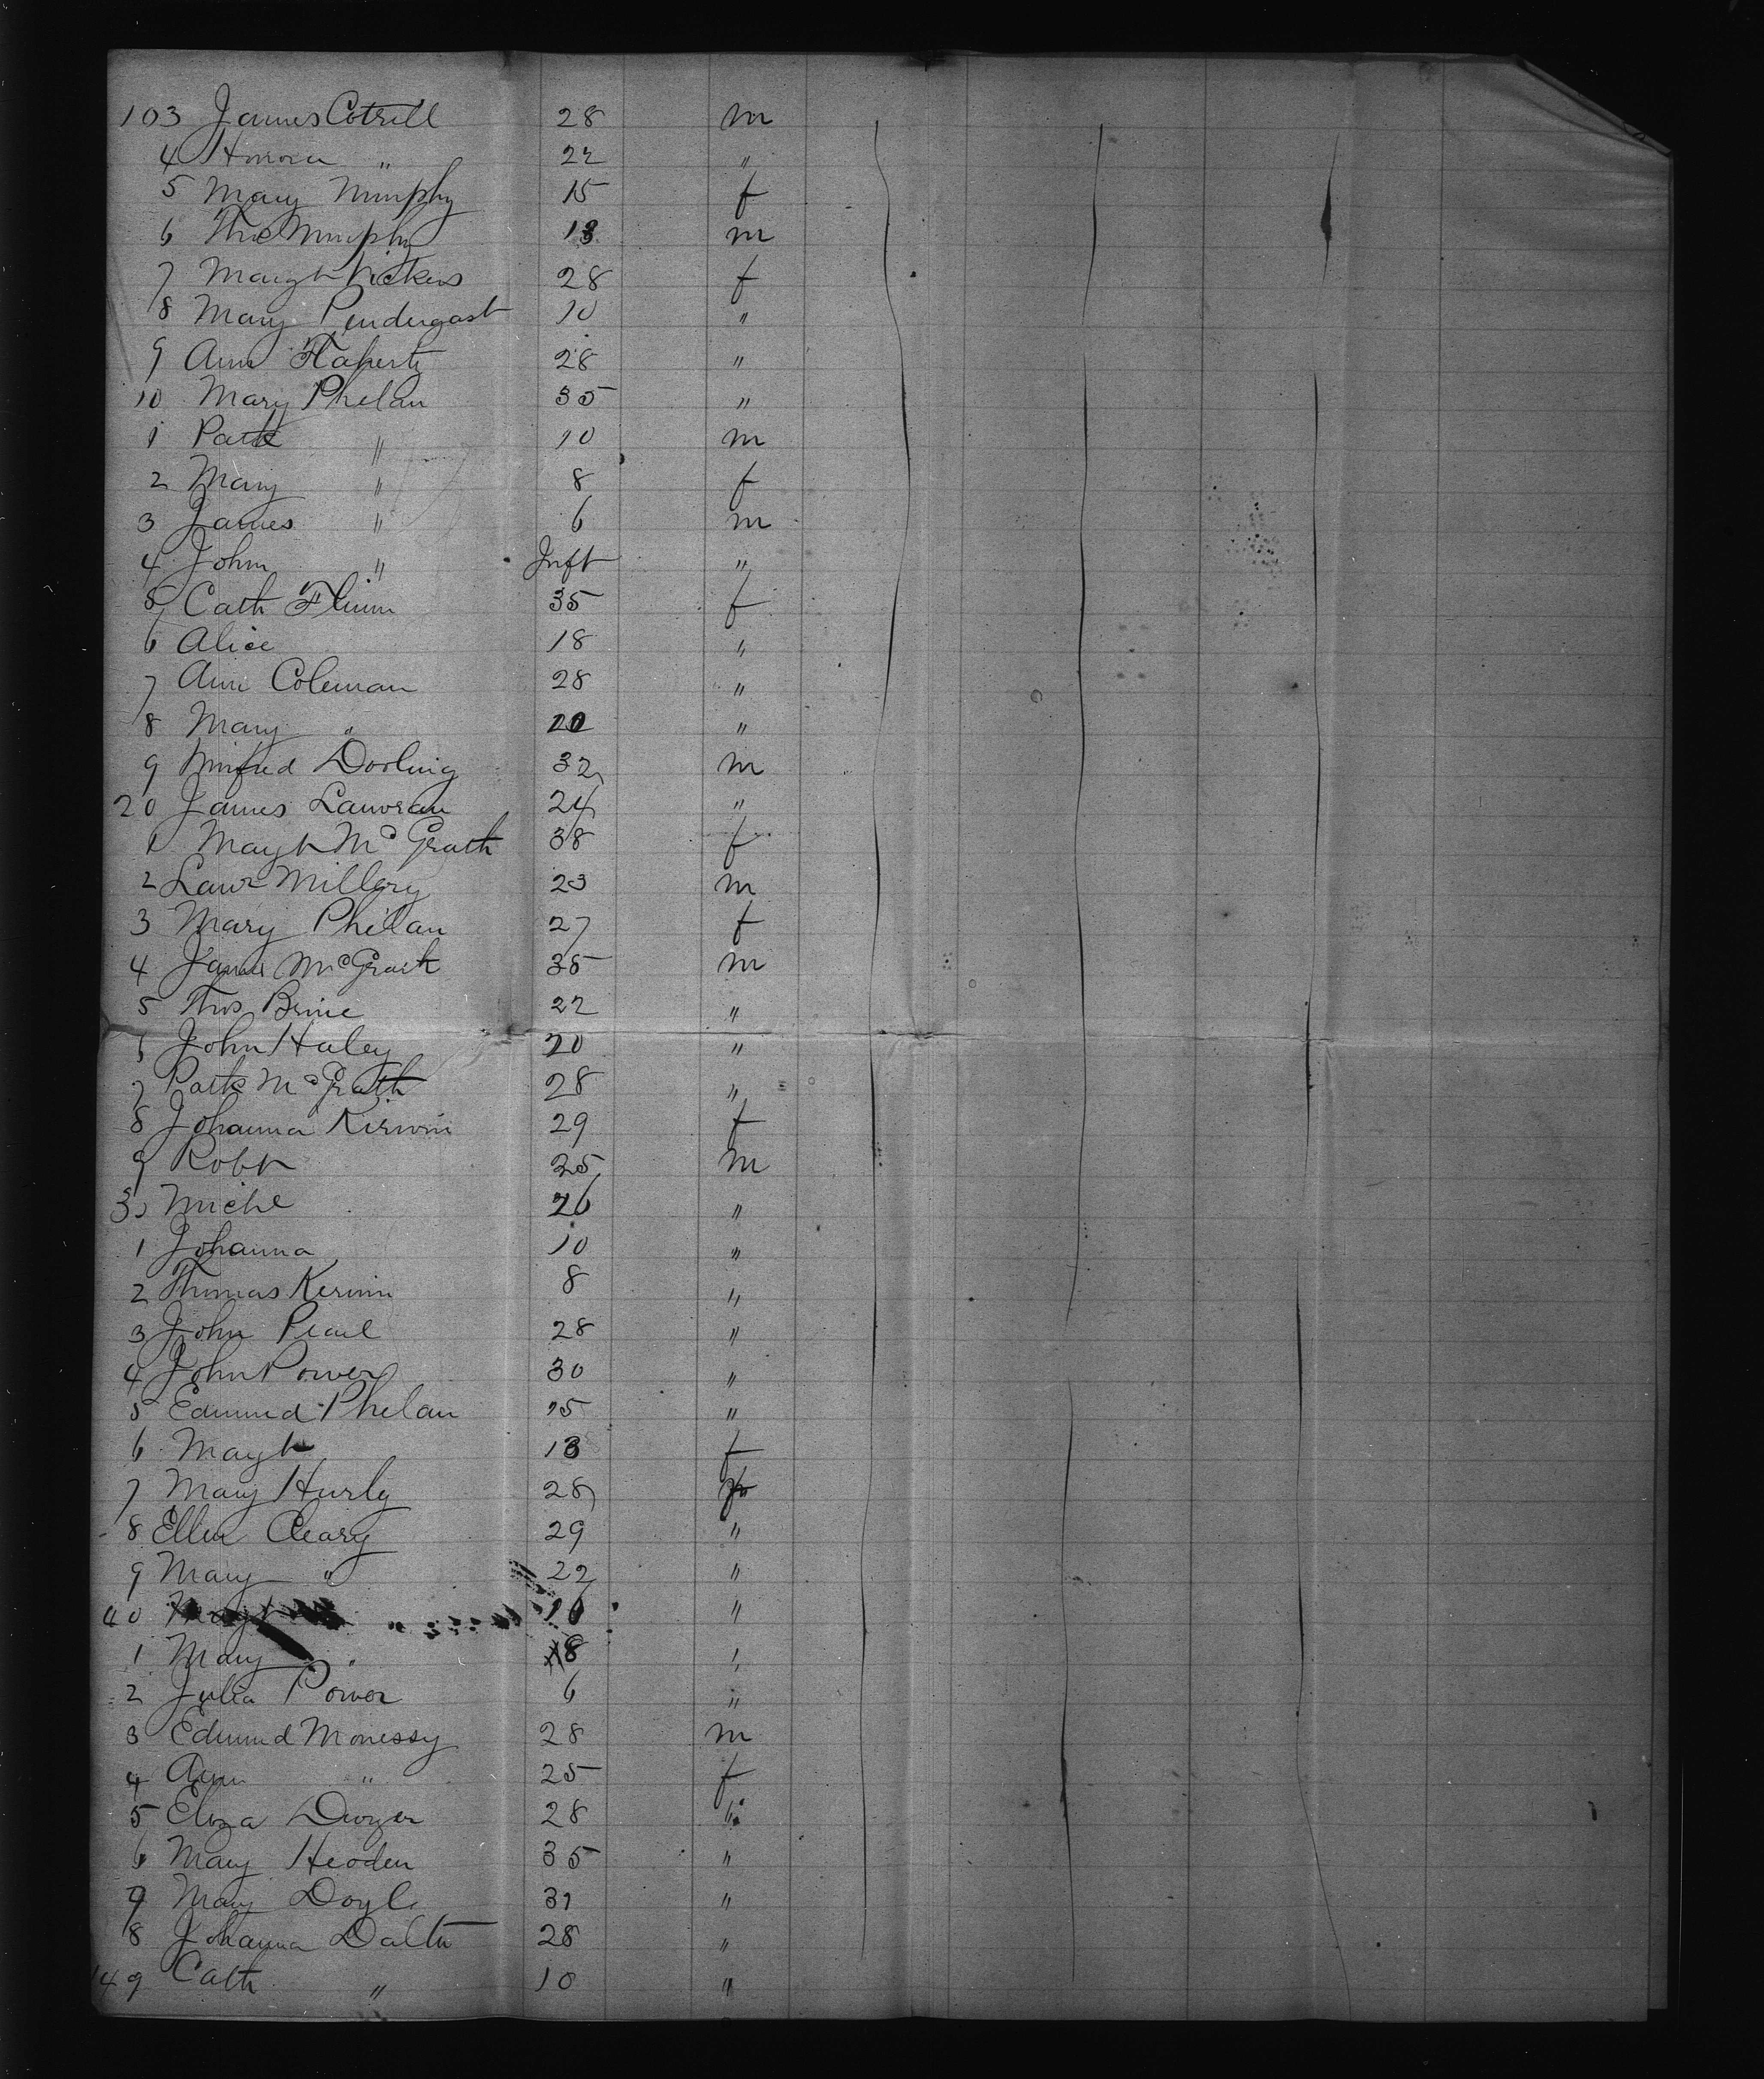 103 James Cotrell 28 m
4 Honora " 22 "
5 Mary Murphy 15 f
6 Thos Murphy 13 m
7 Margt Vickers 28 f
8 Mary Pendergast 10 "
9 Ann Flaherty 28 "
10 Mary Phelan 35 "
1 Patk " 10 m
2 Mary " 8 f
3 James " 6 m
4 John " Inft "
5 Cath Flinn 35 f
6 Alice 18 "
7 Ann Coleman 28 "
8 Mary " 20 "
9 Winfred Dooling 32 m
20 James 24 "
1 Magt McGrath 38 f
2 Lawr Millery 23 m
3 Mary Phelan 27 f
4 James McGrath 35 m
5 Thos Brine 22 "
6 John Haley 20 "
7 Patk McGrath 28 "
8 Johanna Kirwin 29 f
9 Robt 25 m
30 Michl 26 "
1 Johanna 10 "
2 Thomas Kerwin 8 "
3 John Pearl 28 "
4 John Power 30 "
5 Edmund Phelan 15 "
6 Magt 13 f
7 Mary Hurly 28 f
8 Ellen Cleary 29 "
9 Mary " 22 "
40 "
1 Mary " 8 "
2 Julia Power 6 "
3 Edmund Monessy 28 m
4 Ann " 25 f
5 Eliza Dwyer 28 "
6 Mary Headen 35 "
7 Mary Doyle 31 "
8 Johanna Dalton 28 "
149 Cath " 10 "